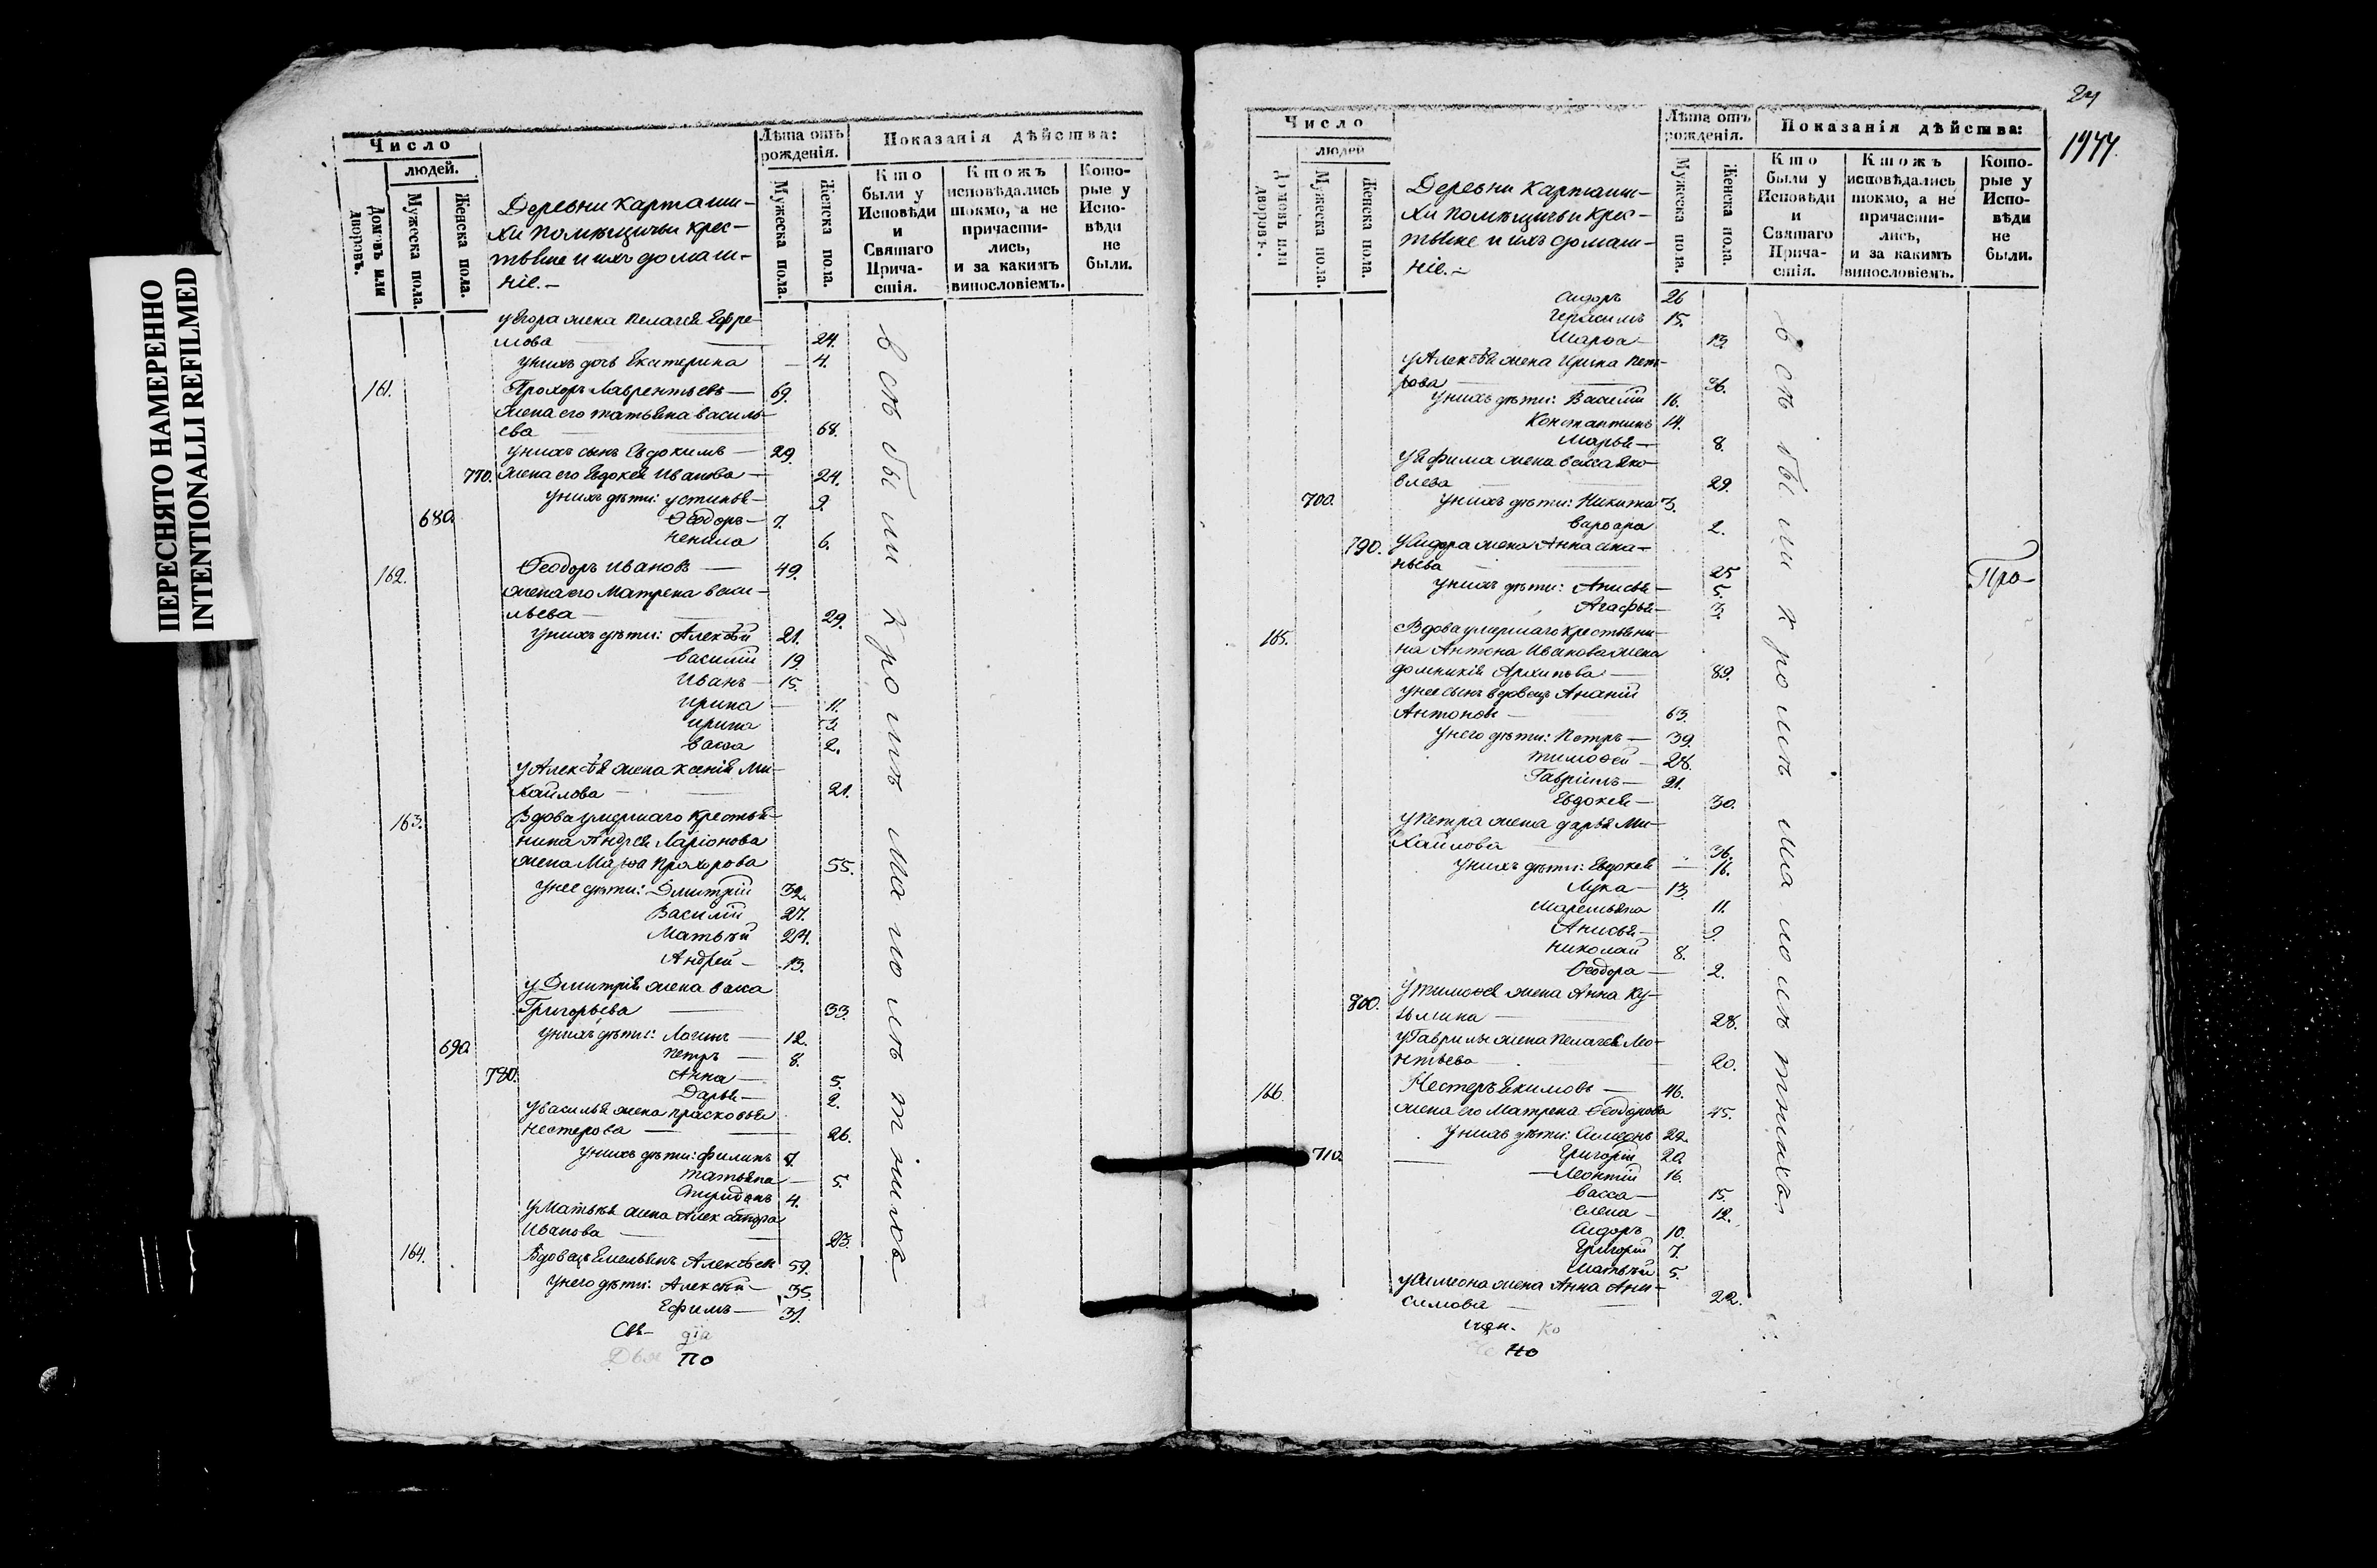 ПЕРЕСНЯТО НАМЕРЕННО
INTENTIONALLI REFILMED
Число
людей.
Домовъ или дворовъ.
Мужеска пола.
Женска пола.
Деревни Карташи-
хи помѣщичьи крес-
тьяне и ихъ домаш-
ніе.-
Лѣта отъ рожденія.
Мужеска пола.
Женска пола.
Показанія дѣйства:
Кто были у Исповѣди и Святаго Причастія.
Ктожъ исповѣдались токмо, а не причастились, и за какимъ винословіемъ.
Которые у Исповѣди не были.
у Егора жена Пелагея Ефре-
мова 24.
у нихъ дочь Екатерина 4.
161. Прохоръ Лаврентьевъ 69.
жена его Татьяна Василь-
ева 68.
у нихъ сынъ Евдокимъ 29.
770. жена его Евдокея Иванова 24.
у нихъ дѣти: Устинья 9.
680. Ѳеодоръ 7.
Ненила 6.
162. Ѳеодоръ Ивановъ 49.
жена его Матрена Васи-
льева 29.
у нихъ дѣти: Алексѣй 21.
Василій 19.
Иванъ 15.
Ирина 11.
Ирина 3.
Васса 2.
у Алексѣя жена Ксенія Ми-
хайлова 21.
163. Вдова умершаго крестья-
нина Андрея Ларіонова
жена Марѳа Прохорова 55.
у нее дѣти: Дмитрій 32.
Василій 27.
Матвѣй 24.
Андрей 13.
у Дмитрія жена Васса
Григорьева 33.
у нихъ дѣти: Логинъ 12.
690. Петръ 8.
780. Анна 5.
Дарья 2.
у Василья жена Прасковья
Нестерова 26.
у нихъ дѣти: Филипъ 7.
Татьяна 5.
Спиридонъ 4.
у Матвѣя жена
Иванова 23.
164. Вдовецъ Емельянъ Алексѣев 59.
у него дѣти: Алексѣй 35.
Ефимъ 31.
всѣ были кромѣ малолѣтнихъ
Свя-
по
24
1977.
Число
людей
Домовъ или дворовъ.
Мужеска пола.
Женска пола.
Деревни Карташи-
хи помѣщичьи крес-
тьяне и ихъ домаш-
ніе.-
Лѣта отъ рожденія.
Мужеска пола.
Женска пола.
Показанія дѣйства:
Кто были у Исповѣди и Святаго Причастія.
Ктожъ исповѣдались токмо, а не причастились, и за какимъ винословіемъ.
Которые у Исповѣди не были.
Сидоръ 26
Герасимъ 15.
Марѳа 13.
у Алексѣя жена Ирина Пет-
рова 36.
у нихъ дѣти: Василій 16.
Константинъ 14.
Марья 8.
у Ефима жена Васса Яко-
влева 29.
700. у нихъ дѣти: Никита 3.
Варвара 2.
790. у Сидора жена Анна Ана-
ньева 25
у нихъ дѣти: Анисья 5.
Агафья 3.
165. Вдова умершаго крестьяни-
на Антона Иванова жена
Домникія Архипова 89.
у нее сынъ вдовецъ Ананій
Антоновъ 63.
у него дѣти: Петръ 39.
Тимоѳей 28.
Гавріилъ 21.
Евдокея 30.
у Петра жена Дарья Ми-
хайлова 36.
у нихъ дѣти: Евдокея 16.
Лука 13.
Маремьяна 11.
Анисья 9.
Николай 8.
Ѳеодора 2.
800. у Тимоѳея жена Анна Ку-
зьмина 28.
у Гаврилы жена Пелагея Лео-
нтьева 20.
166. Нестеръ Якимовъ 46.
жена его Матрена Ѳеодорова 45.
у нихъ дѣти: Симеонъ 22.
710. Григорій 20.
Леонтій 16.
Васса 15.
Елена 12.
Сидоръ 10.
Григорій 7.
Матвѣй 5.
у Симеона жена Анна Ани-
симова 22.
всѣ были кромѣ малолѣтнихъ
Про-
щен.
но